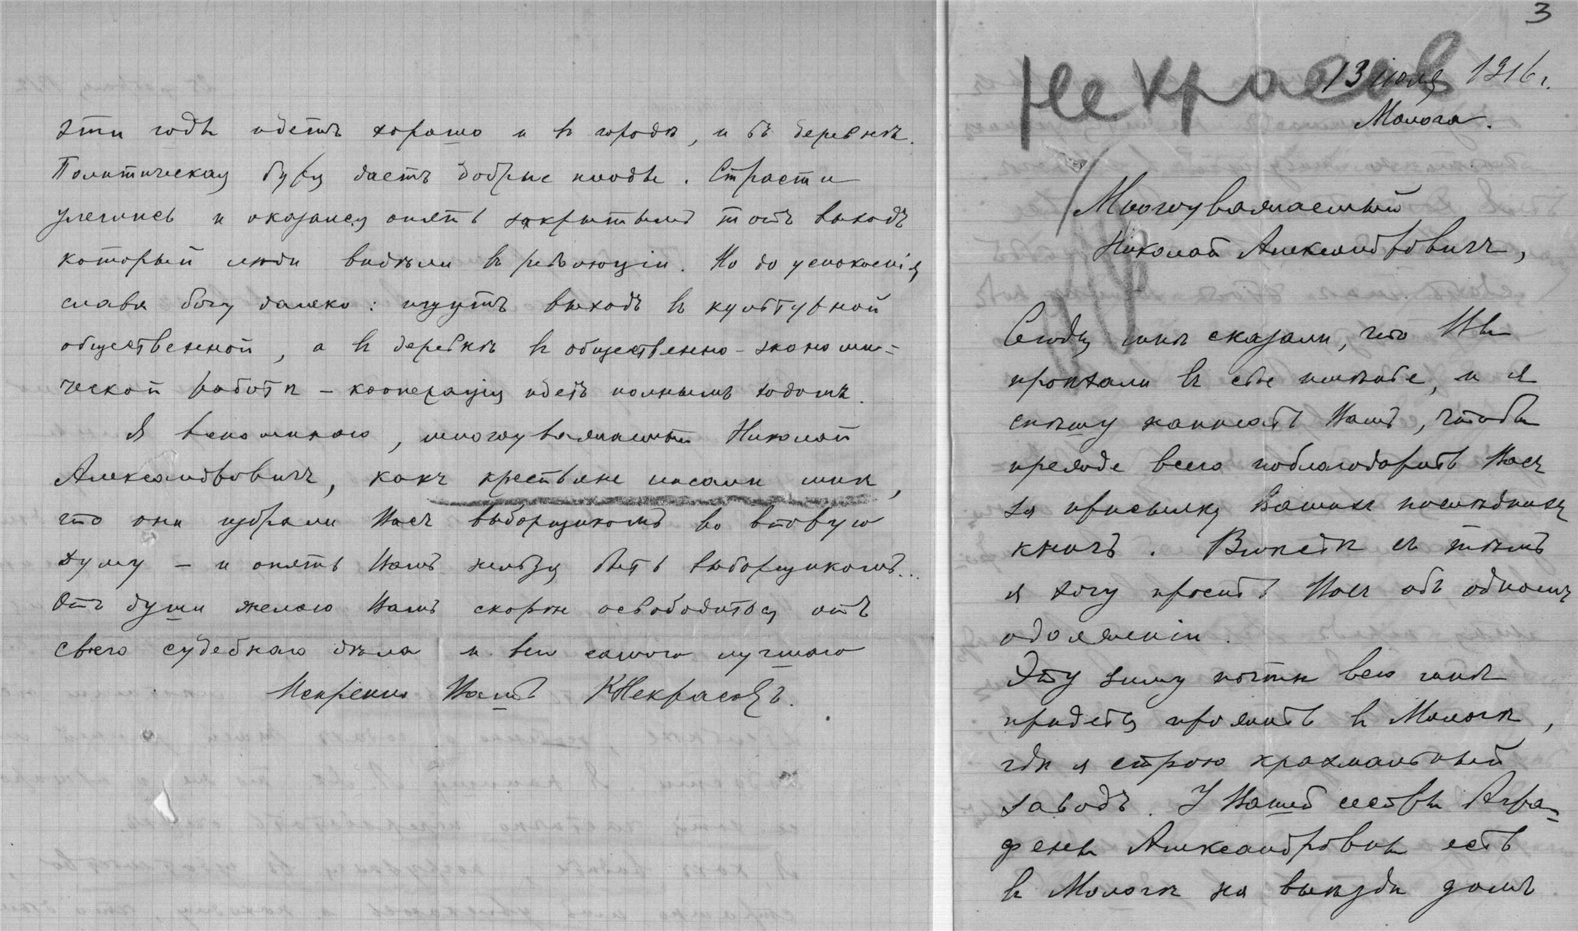 эти годы идетъ хорошо и въ городѣ, и въ деревнѣ.
Политическая буря дастъ добрые плоды. Страсти
улеглись и оказался опять закрытымъ тотъ выходъ
который люди видѣли въ революціи. Но до успокоенія
слава богу далеко: ищутъ выходъ въ культурной
общественной, а въ деревнѣ въ общественно-экономи=
ческой работѣ – кооперація идетъ полнымъ ходомъ.
Я вспоминаю, многоуважаемый Николай
Александровичъ, какъ крестьяне писали мнѣ,
что они избрали Васъ выборщикомъ во вторую
думу – и опять Вамъ нельзя быть выборщикомъ...
Отъ души желаю Вамъ скорѣе освободиться отъ
своего судебнаго дѣла и всего самого лучшаго
Искренно Вашъ КНекрасовъ.
3
Некрасов
13 іюля 1916 г.
Молога.
Многоуважаемый
Николай Александровичъ,
Сегодня мнѣ сказали, что Вы
проѣхали въ свое имѣніе, и я
спѣшу написать Вамъ, чтобы
прежде всего поблагодарить Васъ
за присылку Вашихъ послѣднихъ
книгъ. Вмѣстѣ съ тѣмъ
я хочу просить Васъ объ одномъ
одолженіи.
Эту зиму почти всю мнѣ
придется прожить въ Мологѣ,
гдѣ я строю крахмальный
заводъ. У Вашей сестры Агра=
фены Александровны есть
въ Мологѣ на выѣздѣ домъ